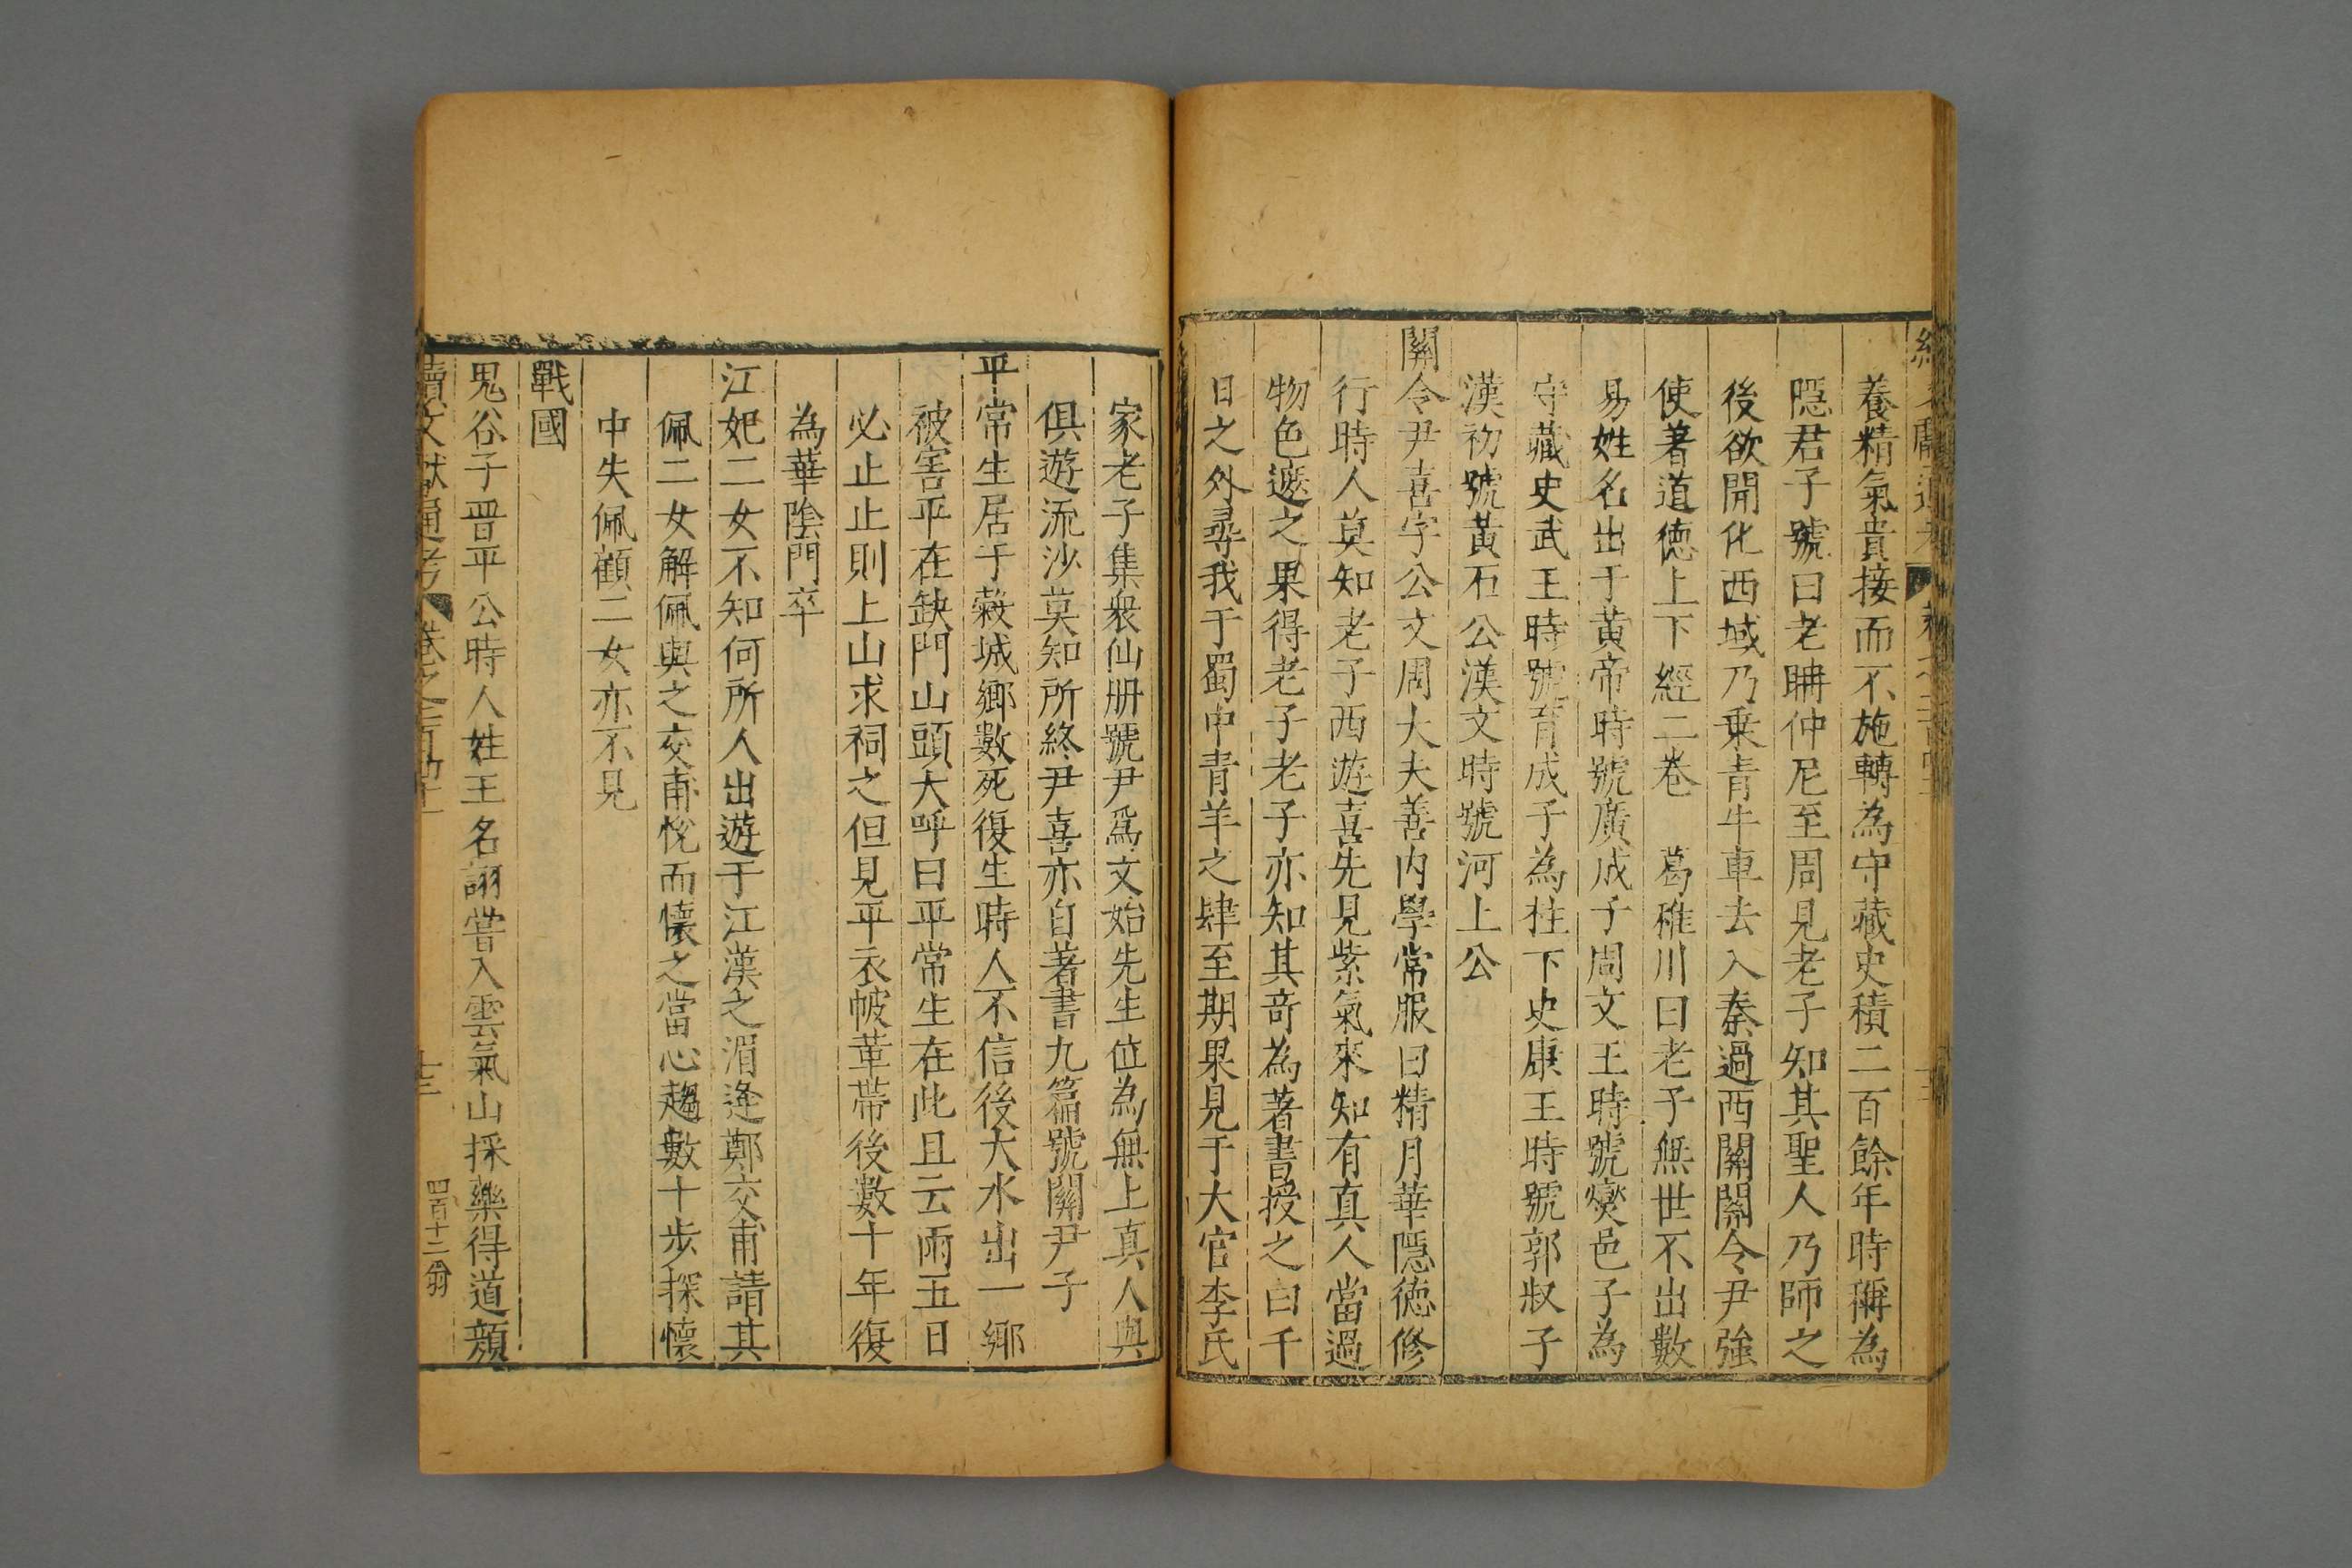 養精氣貴接而不施轉為守藏史積二百餘年時稱為
隱君子號曰老聃仲尼至周見老子知其聖人乃師之
後欲開化西域乃乗青牛車去入秦過西關關令尹強
使著道徳上下經二卷　葛稚川曰老子無世不出數
易姓名出于黃帝時號廣成子周文王時號爕邑子為
守藏史武王時號育成子為柱下史康王時號郭叔子
漢初號黃石公漢文時號河上公
關令尹喜字公文周大夫善内學常服日精月華隱徳修
行時人莫知老子西遊喜先見紫氣來知有真人當過
物色遮之果得老子老子亦知其竒為著書授之曰千
日之外尋我于蜀中青羊之肆至期果見于大官李氏
家老子集衆仙册號尹爲文始先生位為無上真人與
俱遊流沙莫知所終尹喜亦自著書九篇號關尹子
平常生居于榖城鄉數死復生時人不信後大水出一鄉
被害平在缺門山頭大呼曰平常生在此且云雨五日
必止止則上山求祠之但見平衣帔革帶後數十年復
為華陰門卒
江妃二女不知何所人出遊于江漢之湄逢鄭交甫請其
佩二女解佩與之交甫悅而懷之當心趨數十步探懷
中失佩顧二女亦不見
戰國
鬼谷子晋平公時人姓王名詡嘗入雲氣山採藥得道顏
續文献通考　卷之二百四十二
十三
四百十二翁